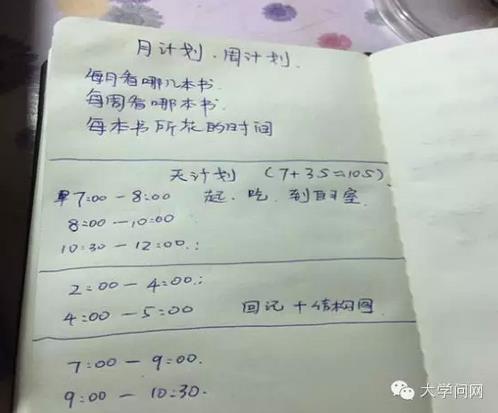 月计划.周计划.
每月看哪几本书.
每周看哪本书.
每本书所花的时间
天计划 (7+3.5=10.5)
早7:00-8:00 起.吃.到自习室.
8:00-10:00
10:30-12:00.:
2:00-4:00.:
4:00-5:00 回记+结构图
7:00-9:00.
9:00-10:30.
大学问网